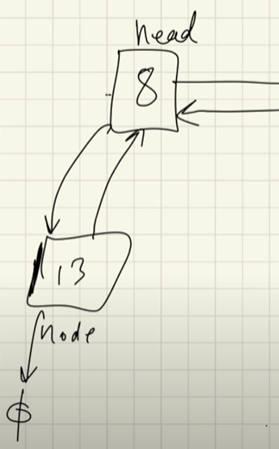 head
8
13
node
φ